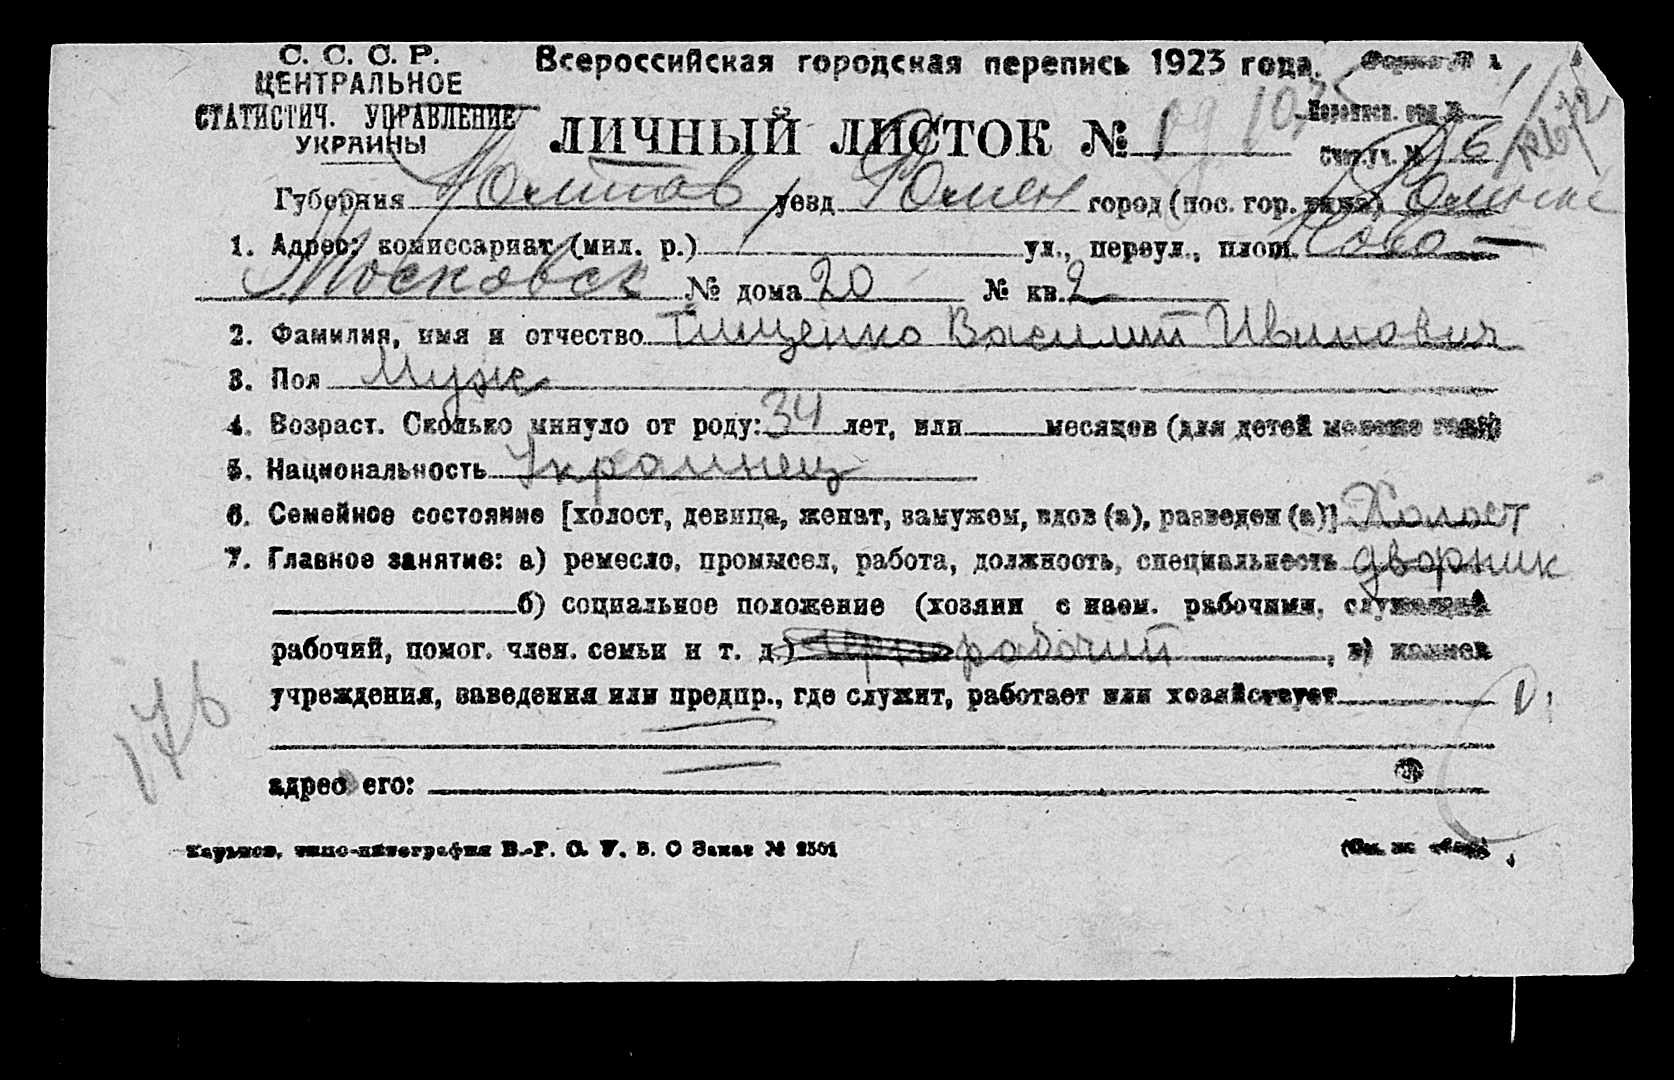 С. С. С. Р.
ЦЕНТРАЛЬНОЕ
СТАТИСТИЧ. УПРАВЛЕНИЕ
УКРАИНЫ
Всероссийская городская перепись 1923 года.
Форма № 1
ЛИЧНЫЙ ЛИСТОК № 1
Переписн. отд. №
Счетн. уч. № 6
Губерния Полтав уезд Ромен город (пос. гор. типа) Ромны
1. Адрес: комиссариат (мил. р.) ул., переул., площ. Ново-
Московск № дома 20 № кв. 2
2. Фамилия, имя и отчество Тищенко Василий Иванович
3. Пол Муж
4. Возраст. Сколько минуло от роду: 34 лет, или месяцев (для детей моложе года)
5. Национальность Украинец
6. Семейное состояние [холост, девица, женат, замужем, вдов (а), разведен (а)] Холост
7. Главное занятие: а) ремесло, промысел, работа, должность, специальность дворник
б) социальное положение (хозяин с наем. рабочими, служащий
рабочий, помог. член. семьи и т. д.) рабочий, в) название
учреждения, заведения или предпр., где служит, работает или хозяйствует
адрес его:
176
Харьков, типо-литография В.-Р. С. У. В. О Заказ № 2501
(См. на обор.)